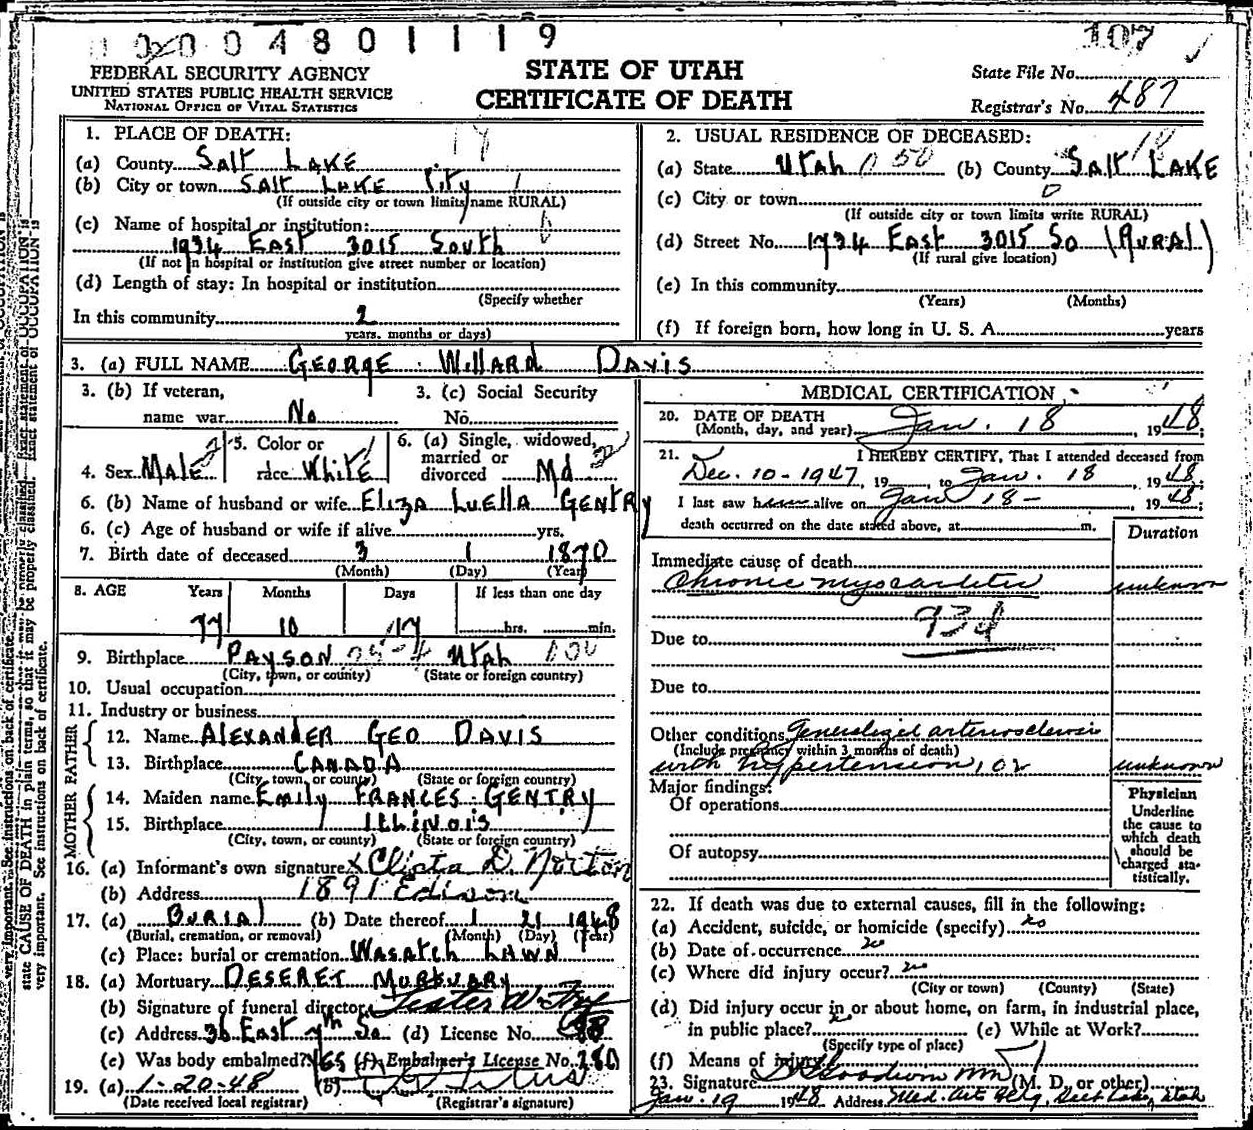 0 0 0 4 8 0 1 1 1 9
107
FEDERAL SECURITY AGENCY
UNITED STATES PUBLIC HEALTH SERVICE
NATIONAL OFFICE OF VITAL STATISTICS
STATE OF UTAH
CERTIFICATE OF DEATH
State File No.
Registrar's No. 487
1. PLACE OF DEATH:
(a) County SALT LAKE
(b) City or town SALT LAKE City
(If outside city or town limits name RURAL)
(c) Name of hospital or institution:
1934 EAST 3015 South
(If not in hospital or institution give street number or location)
(d) Length of stay: In hospital or institution
(Specify whether
In this community 2
years, months or days)
2. USUAL RESIDENCE OF DECEASED:
(a) State Utah (b) County SALT LAKE
(c) City or town
(If outside city or town limits write RURAL)
(d) Street No. 1934 EAST 3015 So (RURAL)
(If rural give location)
(e) In this community
(Years) (Months)
(f) If foreign born, how long in U. S. A. years
3. (a) FULL NAME GEORGE WillARD DAVIS
3. (b) If veteran,
name war No
3. (c) Social Security
No.
4. Sex MALE
5. Color or
race White
6. (a) Single, widowed,
married or
divorced Md.
6. (b) Name of husband or wife ElizA LuEllA GENTRY
6. (c) Age of husband or wife if alive yrs.
7. Birth date of deceased 3 1 1870
(Month) (Day) (Year)
8. AGE Years Months Days If less than one day
77 10 17 hrs. min.
9. Birthplace PAYSON Utah
(City, town, or county) (State or foreign country)
10. Usual occupation
11. Industry or business
FATHER
12. Name ALEXANDER GEO DAVIS
13. Birthplace CANADA
(City, town, or county) (State or foreign country)
MOTHER
14. Maiden name Emily FRANCES GENTRY
15. Birthplace Illinois
(City, town, or county) (State or foreign country)
16. (a) Informant's own signature x D. Norton
(b) Address 1891 Edison
17. (a) BURIAl (b) Date thereof 1 21 1948
(Burial, cremation, or removal) (Month) (Day) (Year)
(c) Place: burial or cremation WASATCH LAWN
18. (a) Mortuary DESERET MORTUARY
(b) Signature of funeral director
(c) Address 36 EAST 7th So. (d) License No. 98
(e) Was body embalmed? YES (f) Embalmer's License No. 280
19. (a) 1-20-48 (b)
(Date received local registrar) (Registrar's signature)
MEDICAL CERTIFICATION
20. DATE OF DEATH
(Month, day, and year) Jan. 18, 1948;
21. I HEREBY CERTIFY, That I attended deceased from
Dec. 10-1947, 19 , to Jan. 18, 1948;
I last saw him alive on Jan 18-, 1948;
death occurred on the date stated above, at m.
Duration
Immediate cause of death
Chronic myocarditis unknown
93d
Due to
Due to
Other conditions Generalized arteriosclerosis
(Include pregnancy within 3 months of death)
with hypertension, 102 unknown
Major findings:
Of operations
Of autopsy
Physician
Underline
the cause to
which death
should be
charged sta-
tistically.
22. If death was due to external causes, fill in the following:
(a) Accident, suicide, or homicide (specify) no
(b) Date of occurrence no
(c) Where did injury occur? no
(City or town) (County) (State)
(d) Did injury occur in or about home, on farm, in industrial place,
in public place? (e) While at Work?
(Specify type of place)
(f) Means of injury
23. Signature (M. D. or other)
Jan. 19 1948 Address Med. Art Bldg, Salt Lake, Utah